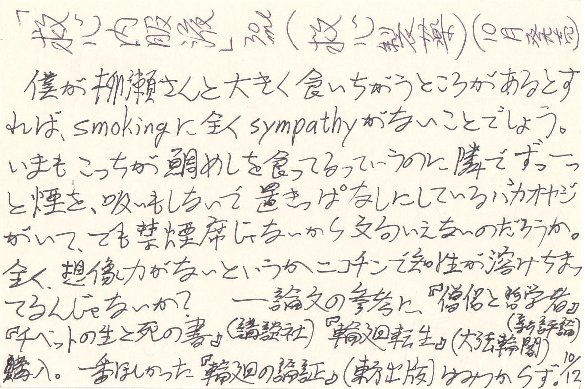 「救心内服液」30ml(救心製薬)(10月発売)
僕が柳瀬さんと大きく食いちがうところがあるとす
れば、smokingに全くsympathyがないことでしょう。
いまもこっちが鯛めしを食ってるっていうのに隣でずーっ
と煙を、吸いもしないで置きっぱなしにしているバカオヤジ
がいて、でも禁煙席じゃないから文句いえないのだろうか。
全く、想像力がないというかニコチンで知性が溶けちまっ
てるんじゃないか? ―論文の参考に、『僧侶と哲学者』
(新評論)
『チベットの生と死の書』(講談社)『輪廻転生』(大法輪閣)
購入。一番ほしかった『輪廻の論証』(東方出版)はみつからず。10/17